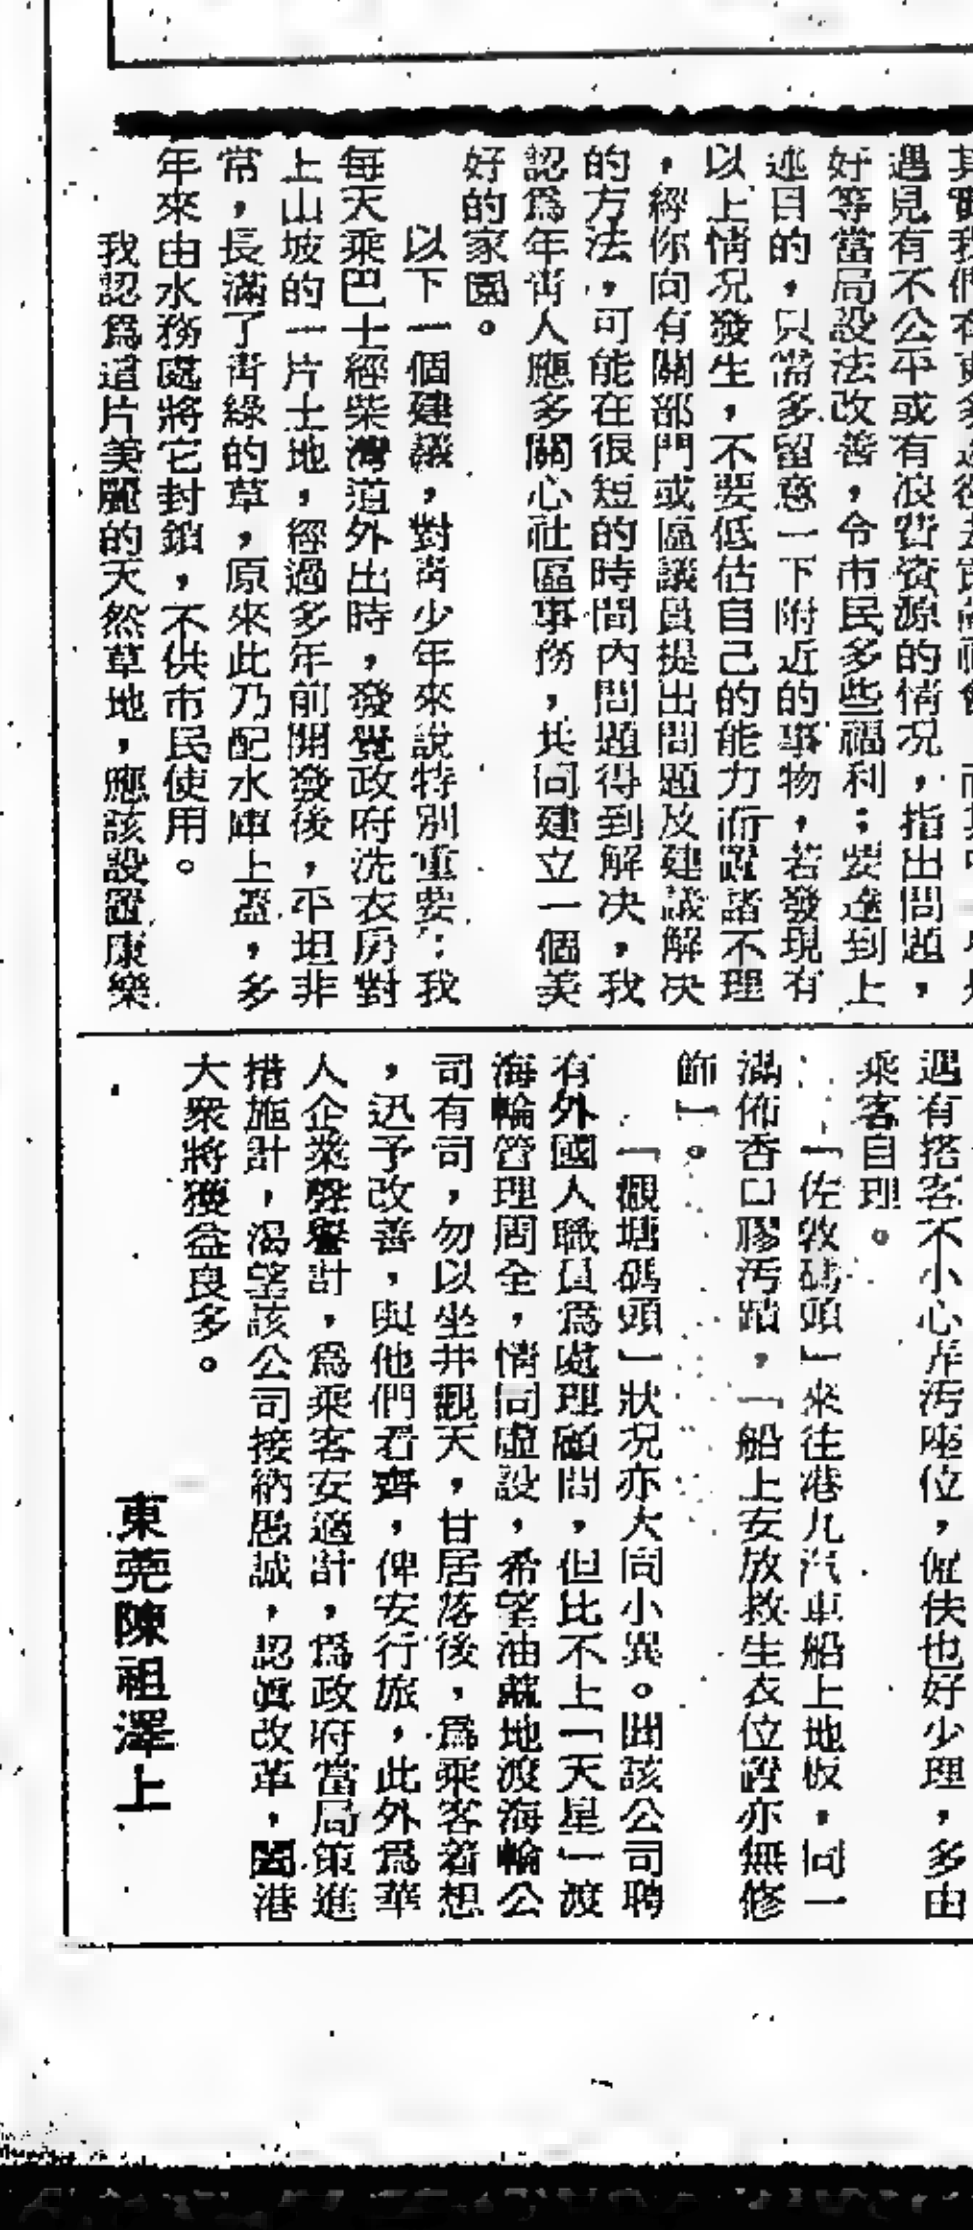 遇見有不公平或有浪費資源的情况，指出問題，
好等當局設法改善，令市民多些福利；要達到上
述目的，只需多留意一下附近的事物，若發現有
以上情况發生，不要低估自己的能力而置諸不理
，經你向有關部門或區議員提出問題及建議解决
的方法，可能在很短的時間內問題得到解决，我
認爲年靑人應多關心社區事務，共同建立一個美
好的家園。
以下一個建議，對靑少年來說特別重要：我
每天乘巴士經柴灣道外出時，發覺政府洗衣房對
上山坡的一片土地，經過多年前開發後，平坦非
常，長滿了靑綠的草，原來此乃配水庫上蓋，多
年來由水務處將它封鎖，不供市民使用。
我認爲這片美麗的天然草地，應該設置康樂
遇有搭客不小心弄污座位，僱伕也好少理，多由
乘客自理。
「佐敦碼頭」來往港九汽車船上地板，同一
滿佈香口膠污蹟，「船上安放救生衣位置亦無修
飾」。
「觀塘碼頭」狀況亦大同小異。聞該公司聘
有外國人職員爲處理顧問，但比不上「天星」渡
海輪管理周全，情同虛設，希望油蔴地渡海輪公
司有司，勿以坐井觀天，甘居落後，爲乘客着想
，迅予改善，與他們看齊，俾安行旅，此外爲華
人企業聲譽計，爲乘客安適計，爲政府當局策進
措施計，渴望該公司接納愚誠，認眞改革，闔港
大衆將獲益良多。
東莞陳祖澤上